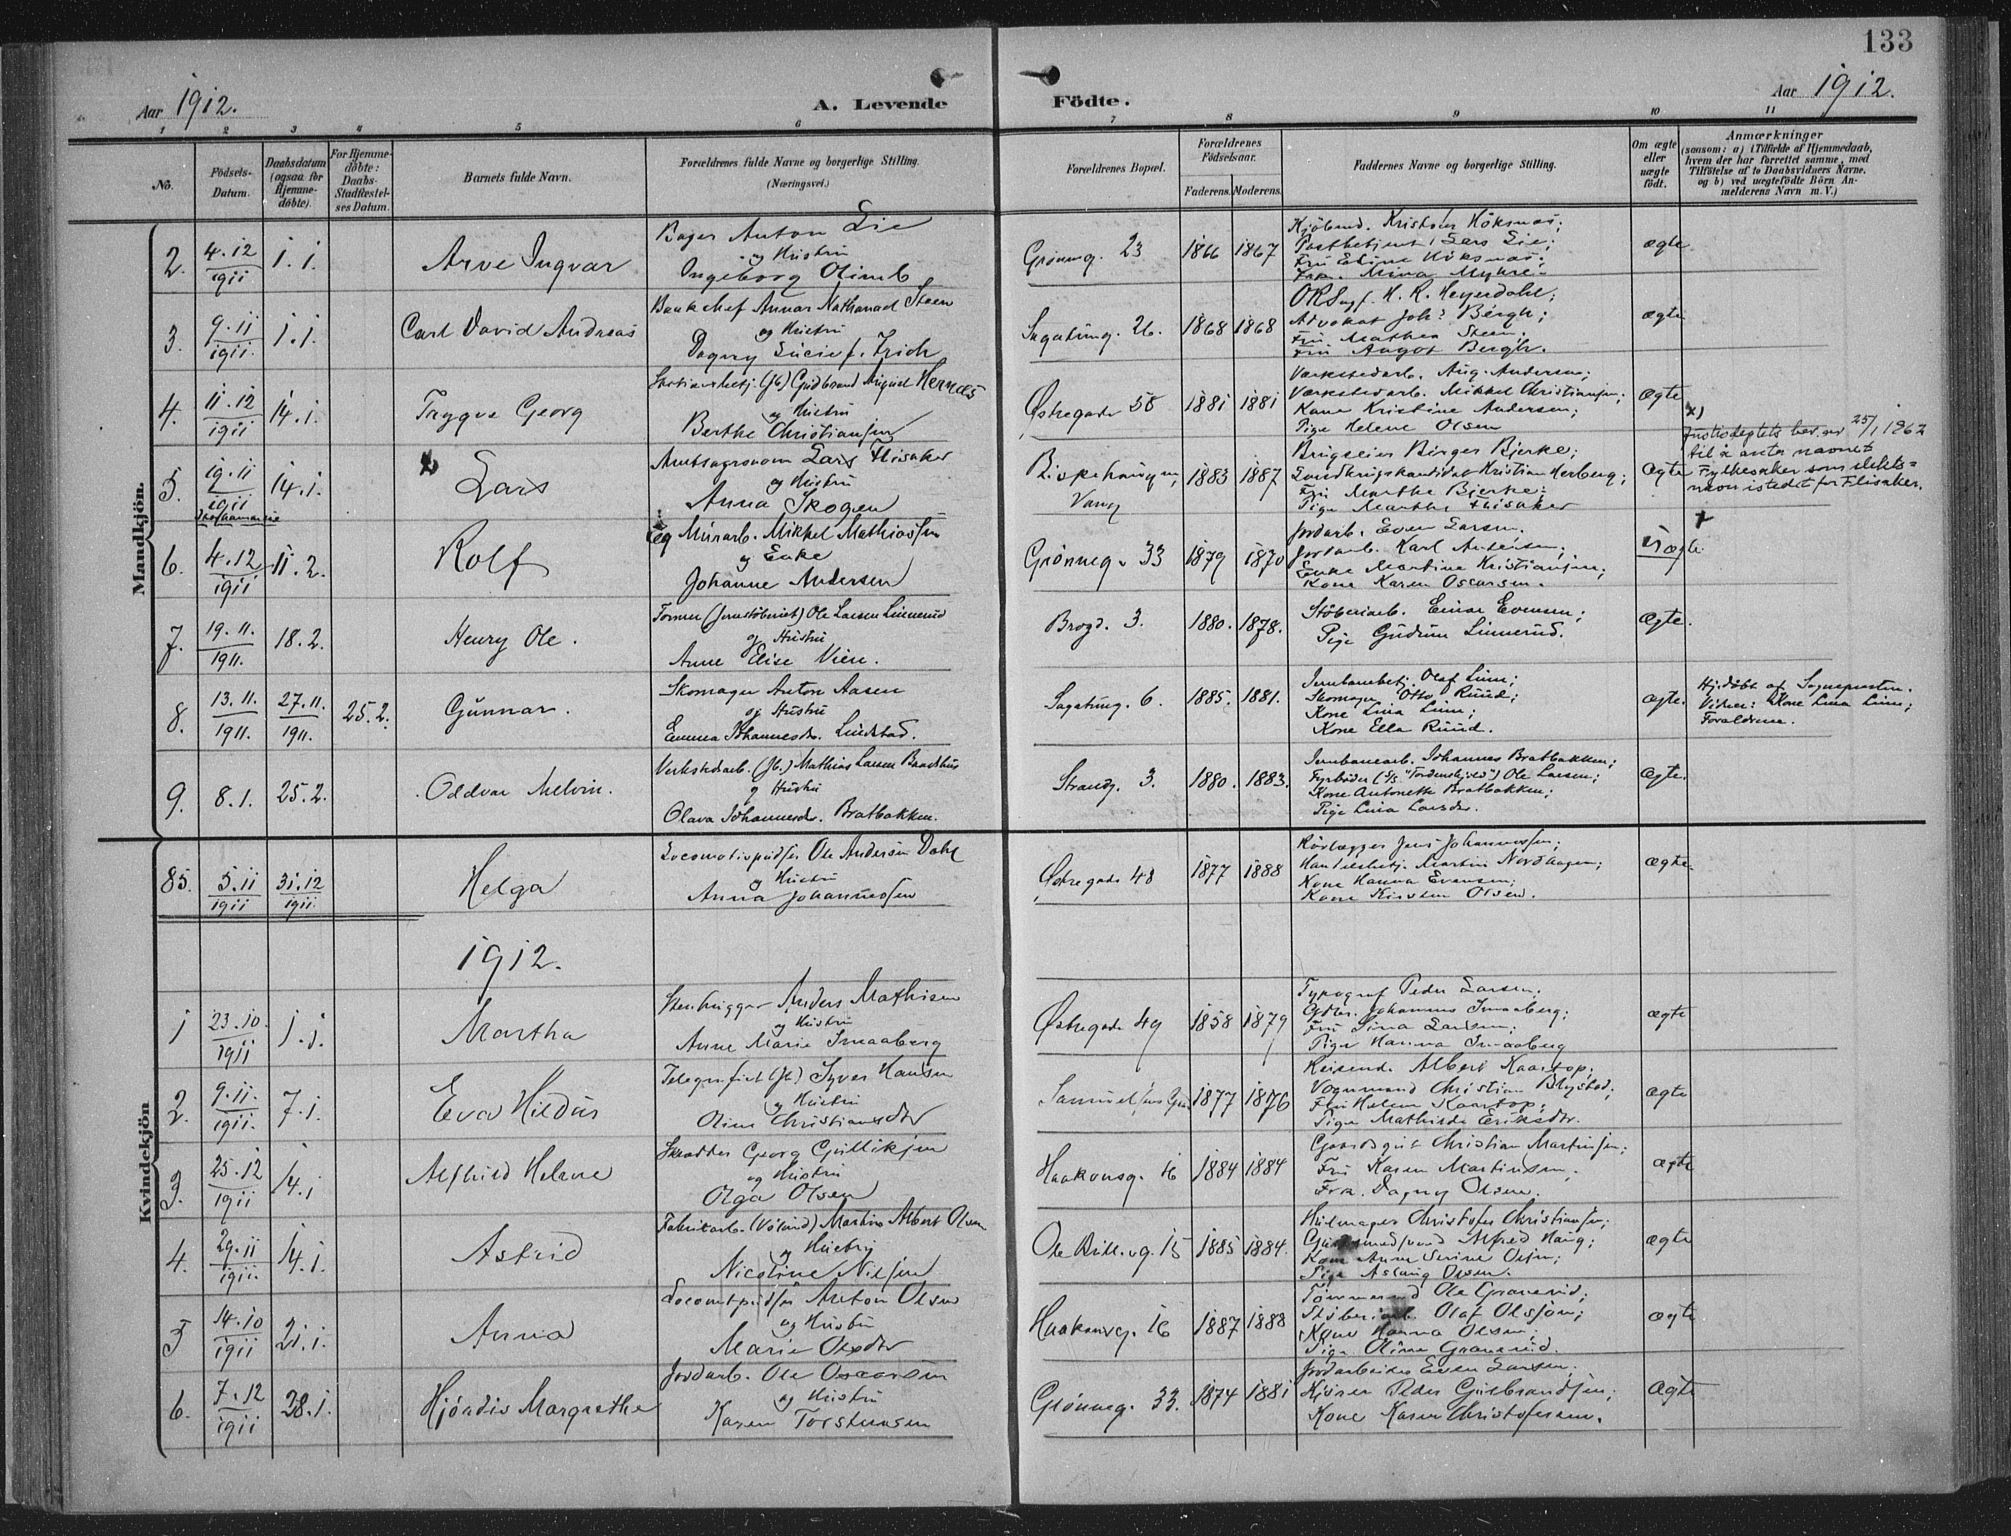 133
Aar 1912.
A. Levende
Födte.
Aar 1912.
1 2 3 4 5 6 7 8 9 10 11
No.
Födsels-
Datum.
Daabsdatum
(ogsaa for
Hjemme-
døbte).
For Hjemme-
døbte:
Daabs-
Stadfæstel-
ses Datum.
Barnets fulde Navn.
Forældrenes fulde Navne og borgerlige Stilling.
(Næringsvei.)
Forældrenes Bopæl.
Forældrenes
Födselsaar.
Faderens. Moderens.
Faddernes Navne og borgerlige Stilling.
Om ægte
eller
uægte
födt.
Anmærkninger
(saasom: a) i Tilfælde af Hjemmedaab,
hvem der har forrettet samme, med
Tilføielse af to Daabsvidners Navne,
og b) ved uægtefødte Børn An-
melderens Navn m. V.)
Mandkjön.
2. 4.12 1911 1.1. Arve Ingvar
Bager Anton Lie
og Hustru
Ingeborg Olimb
Grønneg. 23 1866 1867
Kristian Höksnæs;
Postbetjent Lars Lie;
Fru Eline Höksnæs;
Mina Myhre
ægte
3. 9.11 1911. 1.1. Carl David Andreas
Bankchef Annar Nathanael Steen
og Hustru
Dagny Lucie f. Irich
Sagatung. 26. 1868 1868
ORSagf. H. R. Heyerdahl;
Advokat Johs Bergh;
Fru Mathea Steen;
Fru Aagot Bergh.
ægte
4. 11.12 1911 14.1. Trygve Georg
Stationsbetj. (Jb) Gudbrand August Hernæs
og Hustru
Berthe Christiansen
Østregade 58 1881 1881
Værkstedarb. Aug. Andersen;
Værkstedarb. Mikkel Christiansen;
Kone Kristine Andersen;
Pige Helene Olsen
ægte
5. 19.11 1911 14.1. x) Lars
Amtsagronom Lars Flisaker
og Hustru
Anna Skogen
Bispehaugen, Vang 1883 1887
Brugseier Birger Bjerke;
Landbrugskandidat Kristian Herberg;
Fru Marthe Bjerke;
Pige Marthe Flisaker
ægte
x)
Justisdeptets bev. av 25/1 1962
til å anta navnet
Fylkesaker som slekts-
navn istedet for Flisaker.
6. 4.12 1911 11.2. Rolf
Murarb. Mikkel Mathiassen
og Enke
Johanne Andersen
Grønneg. 33 1879 1870
Jordarb. Even Larsen;
Jordarb. Karl Andersen;
Enke Martine Kristiansen;
Kone Karen Oscarsen.
uægte
7. 19.11. 1911. 18.2. Henry Ole.
Former (Jernstøberiet) Ole Larsen Linnerud
og Hustru
Anne Elise Vien.
Brogd. 3. 1880. 1878.
Støberiarb. Einar Evensen;
Pige Gudrun Linnerud.
ægte.
8. 13.11. 1911. 27.11. 1911. 25.2. Gunnar.
Skomager Anton Aasen
og Hustru
Emma Johannesdr. Lundstad.
Sagatung. 6. 1885. 1881.
Jernbanebetj. Olaf Linn;
Skomager Otto Ruud;
Kone Lina Linn;
Kone Ella Ruud.
ægte.
Hj.døbt af Sognepresten.
Vidner: Kone Lina Linn;
Forældrene.
9. 8.1. 25.2. Oddvar Melvin.
Verkstedarb. (Jb.) Mathias Larsen Baadshus
og Hustru
Olava Johannesdr. Bratbakken.
Strandg. 3. 1880. 1883.
Jernbanearb. Johannes Bratbakken;
Fyrbøder (D/S "Tordenskjold") Ole Larsen;
Kone Antonette Bratbakken;
Pige Lina Larsdr.
ægte.
Kvindekjön
85. 5.11 1911 31.12 1911. Helga
Locomotivpudser Ole Andersen Dahl
og Hustru
Anna Johannessen
Østregade 43 1877 1888
Rørlægger Jens Johannessen;
Handelsbetj. Martin Nordhagen;
Kone Hanna Evensen;
Kone Kirsten Olsen.
ægte
1912.
1 23.10. 1911 1.1. Martha
Stenhugger Anders Mathisen
og Hustru
Anne Marie Smaaberg
Østregade 49 1858 1879
Typograf Peder Larsen.
Gdbr. Johannes Smaaberg;
Fru Sina Larsen;
Pige Hanna Smaaberg
ægte
2. 9.11. 1911. 7.1. Eva Hildur
Telegrafist (Jb) Syver Hansen
og Hustru
Oline Christiansdtr
1877 1876
Reisende Albert Kaartop;
Vognmand Christian Blystad;
Fru Helen Kaartop;
Pige Mathilde Eriksdtr.
ægte
3. 25.12 1911 14.1 Alfhild Helene
Skrædder Georg Gulliksen
og Hustru
Olga Olsen
Haakonsg. 16 1884 1884
Christian Martinsen;
Fru Karen Martinsen;
Frk. Dagny Olsen.
ægte
4. 29.11 1911. 14.1. Astrid
Fabrikarb. (Vølund) Martin Albert Olsen
og Hustru
Nicoline Nilsen
Ole Bull.vg. 15 1885 1884.
Hjulmager Christofer Christiansen;
Alfred Haug;
Kone Anne Serine Olsen;
Pige Aslaug Olsen.
ægte
5 14.10 1911 21.1. Anna
Locomotpudser Anton Olsen
og Hustru
Marie Olsdtr
Haakonvg. 16 1887 1888
Tømmermand Ole Granerud;
Støberiarb. Olaf Olsson;
Kone Hanna Olsen;
Pige Oline Granerud.
ægte
6. 7.12 1911 28.1. Hjørdis Margrethe
Jordarb. Ole Oscarsen
og Hustru
Karen Torstensen
Grønneg. 33. 1874 1881
Jordarbeider Even Larsen;
Kjører Peder Gulbrandsen;
Kone Karen Christofersen.
ægte